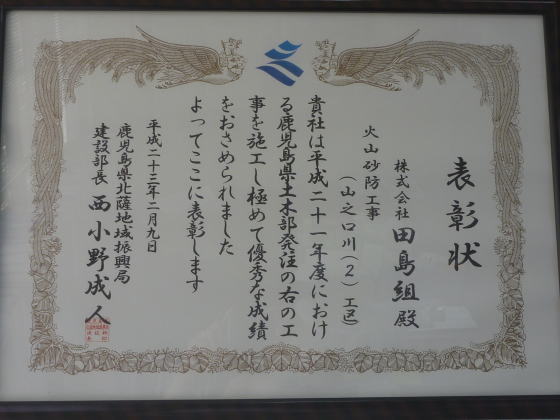 表彰状
株式会社 田島組 殿
火山砂防工事
(山之口川(2)工区)
貴社は平成二十一年度におけ
る鹿児島県土木部発注の右の工
事を施工し極めて優秀な成績
をおさめられました
よってここに表彰します
平成二十三年二月九日
鹿児島県北薩地域振興局
建設部長 西小野成人